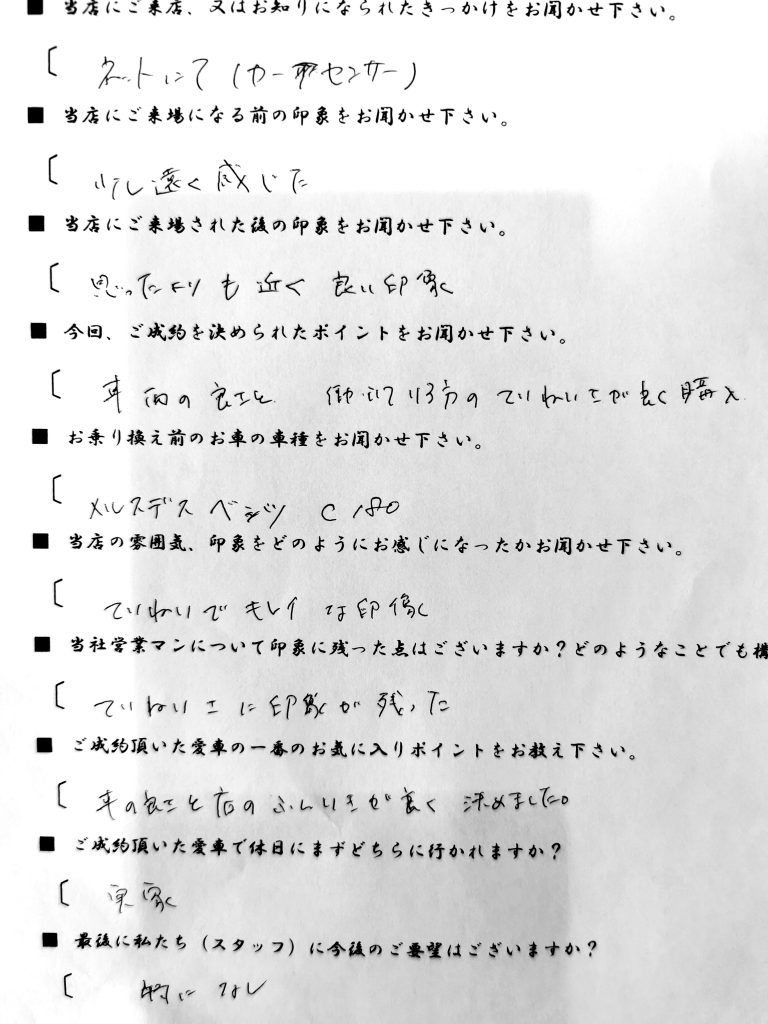 ■ 当店にご来店、又はお知りになられたきっかけをお聞かせ下さい。
〔 ネットにて（カーセンサー）
■ 当店にご来場になる前の印象をお聞かせ下さい。
〔 少し遠く感じた
■ 当店にご来場された後の印象をお聞かせ下さい。
〔 思ったよりも近く 良い印象
■ 今回、ご成約を決められたポイントをお聞かせ下さい。
〔 車両の良さと 働いている方のていねいさが良く購入
■ お乗り換え前のお車の車種をお聞かせ下さい。
〔 メルスデス ベンツ C180
■ 当店の雰囲気、印象をどのようにお感じになったかお聞かせ下さい。
〔 ていねいでキレイな印像
■ 当社営業マンについて印象に残った点はございますか？どのようなことでも構
〔 ていねいさに印象が残った
■ ご成約頂いた愛車の一番のお気に入りポイントをお教え下さい。
〔 車の良さと店のふんいきが良く 決めました。
■ ご成約頂いた愛車で休日にまずどちらに行かれますか？
〔 実家
■ 最後に私たち（スタッフ）に今後のご要望はございますか？
〔 特になし